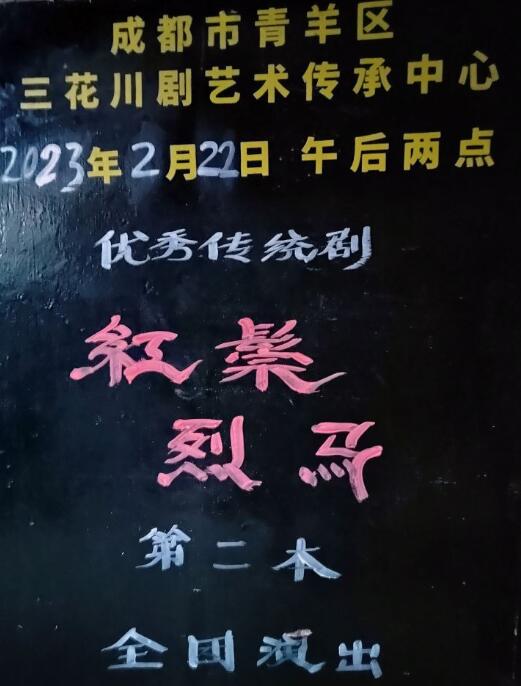 成都市青羊区
三花川剧艺术传承中心
2023年2月22日 午后两点
优秀传统剧
紅鬃
烈馬
第二本
全团演出